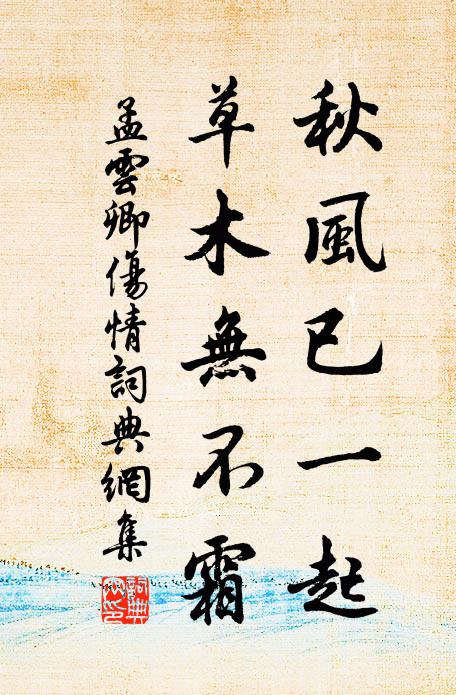 秋風已一起
草木無不霜
孟雲卿傷情詞典網集